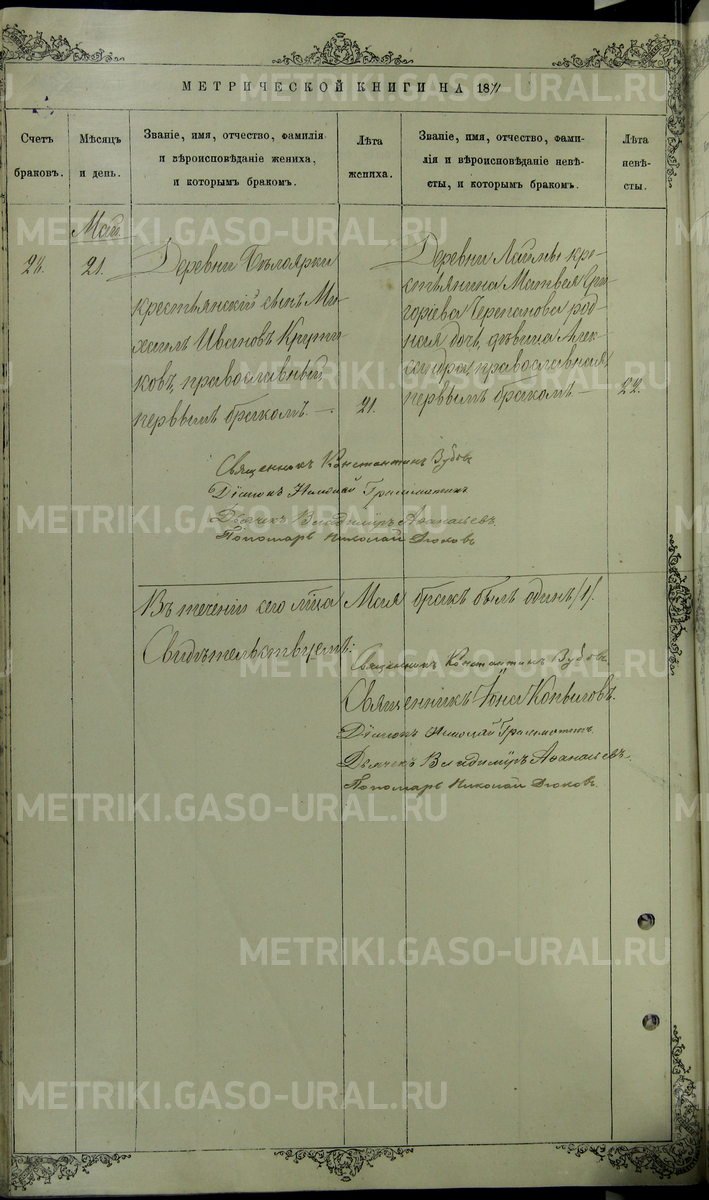 МЕТРИЧЕСКОЙ КНИГИ НА 1871
Счетъ браковъ.
Мѣсяцъ и день.
Званіе, имя, отчество, фамилія
и вѣроисповѣданіе жениха,
и которымъ бракомъ.
Лѣта жениха.
Званіе, имя, отчество, фами-
лія и вѣроисповѣданіе невѣ-
сты, и которымъ бракомъ.
Лѣта
невѣ-
сты.
Май.
21.
Деревни Бѣлоярки
крестьянскій сынъ Ми-
хаилъ Ивановъ
ковъ, православный,
первымъ бракомъ. —
21.
Деревни кре-
стьянина Матвея Гри-
горіева Черепанова род-
ная дочь, дѣвица Алек-
сандра, православная,
первымъ бракомъ. —
22.
Священникъ Константинъ Зубовъ
Діаконъ Николай Грамматинъ
Дьячекъ Владиміръ Аѳанасьевъ.
Пономарь Николай Дюковъ
Въ теченіи сего мѣсяца Мая бракъ былъ одинъ /1/.
Свидѣтельствуемъ:
Священникъ Константинъ Зубовъ
Священникъ Іона Копыловъ.
Діаконъ Николай Грамматинъ.
Дьячекъ Владиміръ Аѳанасьевъ.
Пономарь Николай Дюковъ.
METRIKI.GASO-URAL.RU